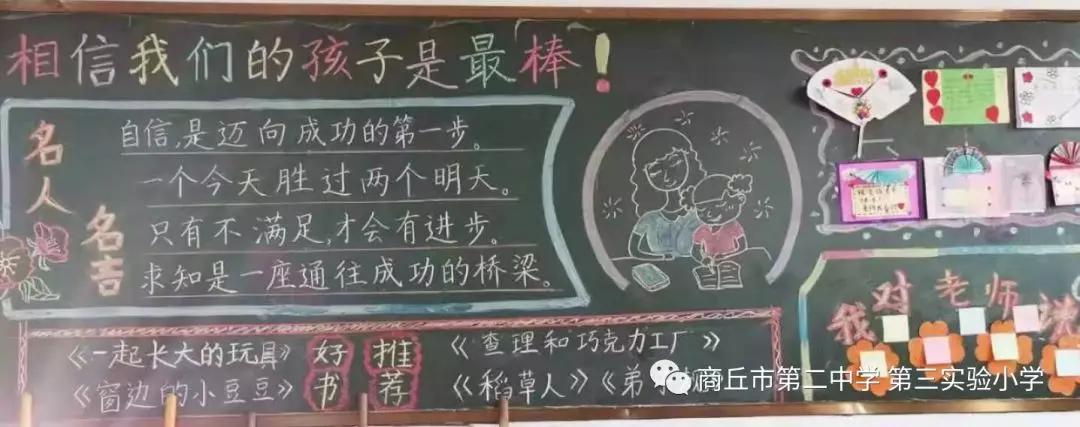 相信我们的孩子是最棒!
名人
名言
自信,是迈向成功的第一步。
一个今天胜过两个明天。
只有不满足,才会有进步。
求知是一座通往成功的桥梁。
好书
推荐
《一起长大的玩具》
《窗边的小豆豆》
《查理和巧克力工厂》
《稻草人》《弟
我对老师说
商丘市第二中学 第三实验小学